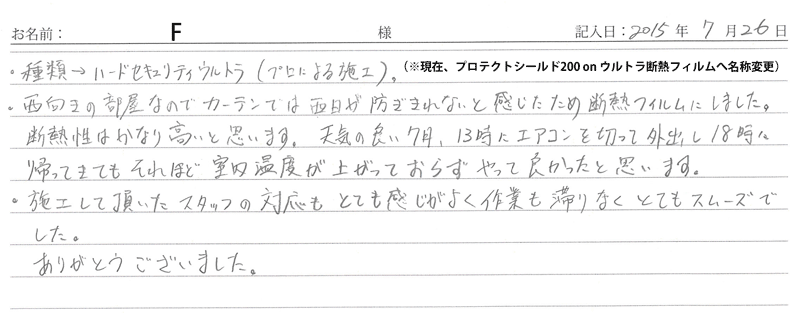 お名前： F 様 記入日：2015年 7月26日
・種類→ハードセキュリティウルトラ（プロによる施工）。（※現在、プロテクトシールド200 on ウルトラ断熱フィルムへ名称変更）
・西向きの部屋なのでカーテンでは西日が防ぎきれないと感じたため断熱フィルムにしました。
断熱性はかなり高いと思います。天気の良い7月、13時にエアコンを切って外出し18時に
帰ってきてもそれほど室内温度が上がっておらずやって良かったと思います。
・施工して頂いたスタッフの対応もとても感じがよく作業も滞りなくとてもスムーズで
した。
ありがとうございました。